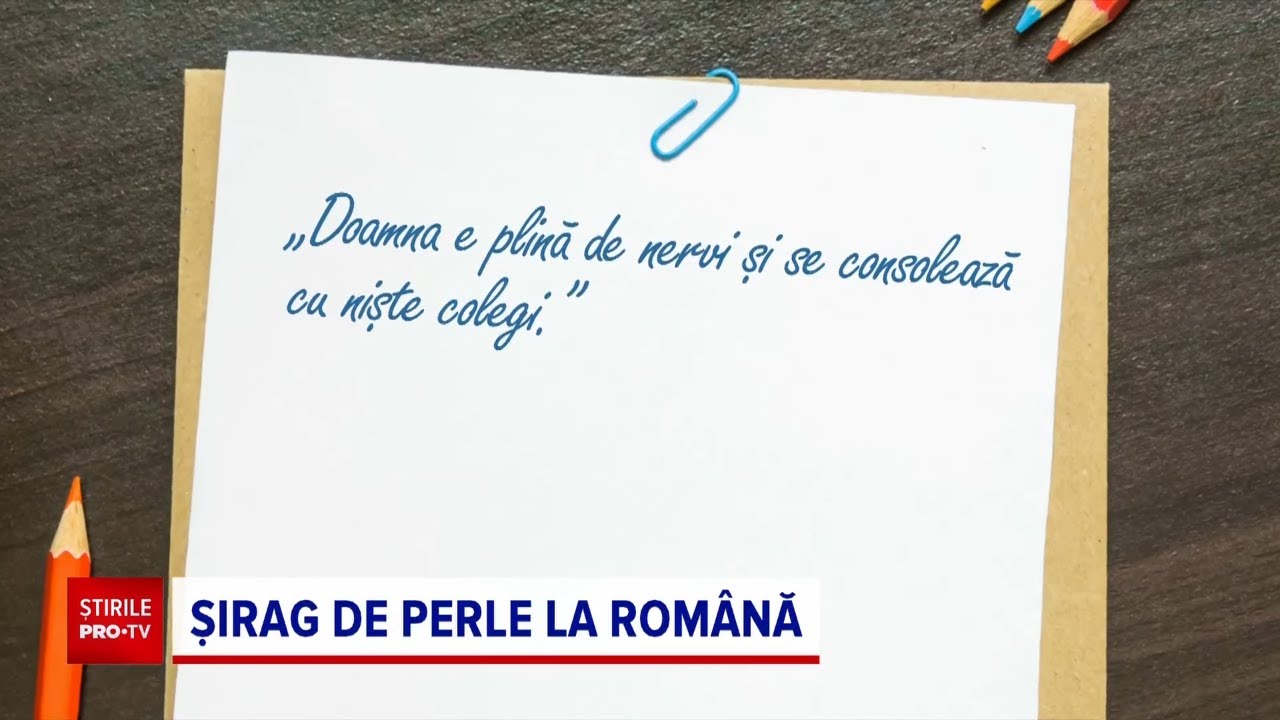 „Doamna e plină de nervi și se consolează
cu niște colegi.”
ȘTIRILE
PRO•TV
ȘIRAG DE PERLE LA ROMÂNĂ